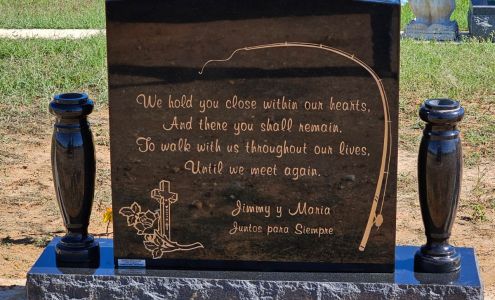 We hold you close within our hearts,
And there you shall remain.
To walk with us throughout our lives,
Until we meet again.
Jimmy y Maria
Juntos para Siempre